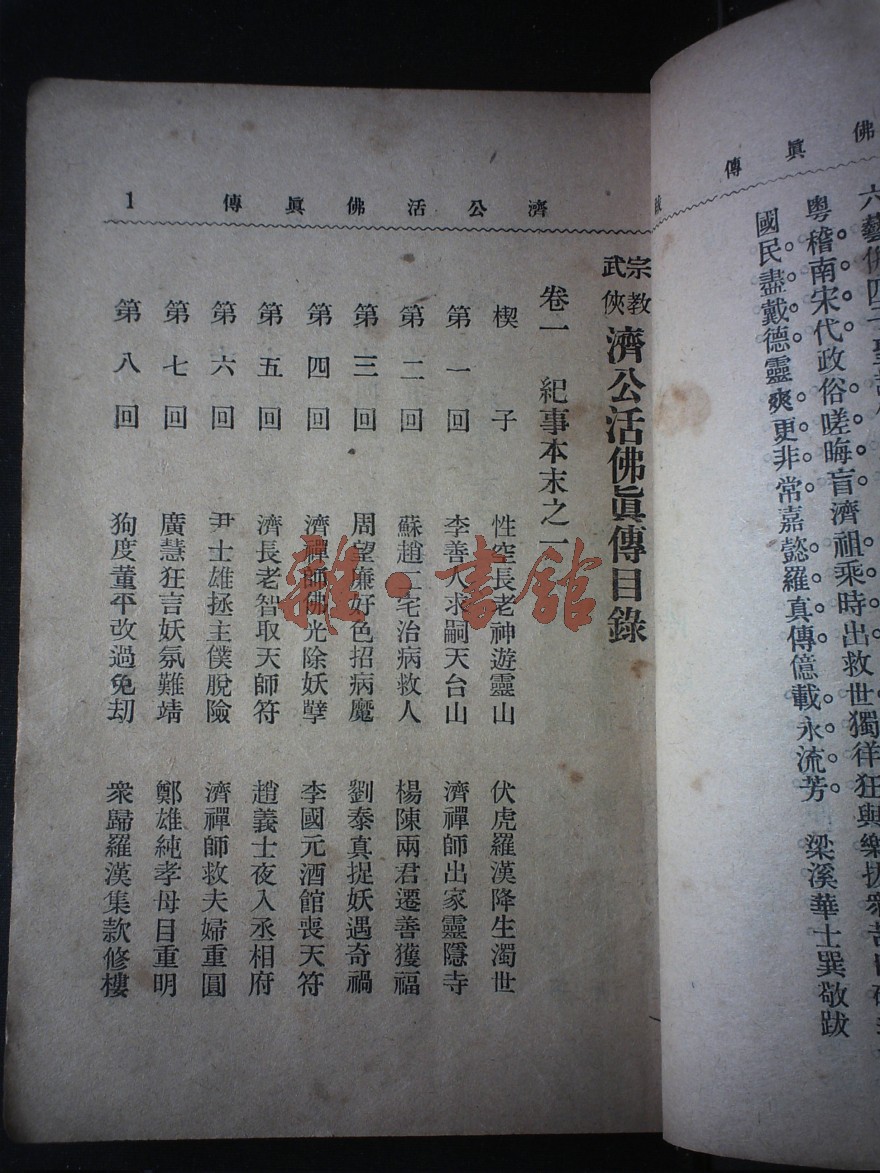 佛眞傳
跋
六藝佛四
粵稽南宋代政俗嗟晦盲。濟祖乘時出救世。獨徉狂與樂拔衆苦
國民。盡戴德。靈爽更非常。嘉懿羅真傳。億載永流芳。 梁溪華士巽敬跋
濟公活佛眞傳 1
宗教武俠 濟公活佛眞傳目錄
卷一 紀事本末之一
楔子 性空長老神遊靈山 伏虎羅漢降生濁世
第一回 李善人求嗣天台山 濟禪師出家靈隱寺
第二回 蘇趙二宅治病救人 楊陳兩君遷善獲福
第三回 周望廉好色招病魔 劉泰真捉妖遇奇禍
第四回 濟禪師佛光除妖孽 李國元酒館喪天符
第五回 濟長老智取天師符 趙義士夜入丞相府
第六回 尹士雄拯主僕脫險 濟禪師救夫婦重圓
第七回 廣慧狂言妖氛難靖 鄭雄純孝母目重明
第八回 狗度董平改過免刧 衆歸羅漢集款修樓
雜·書館